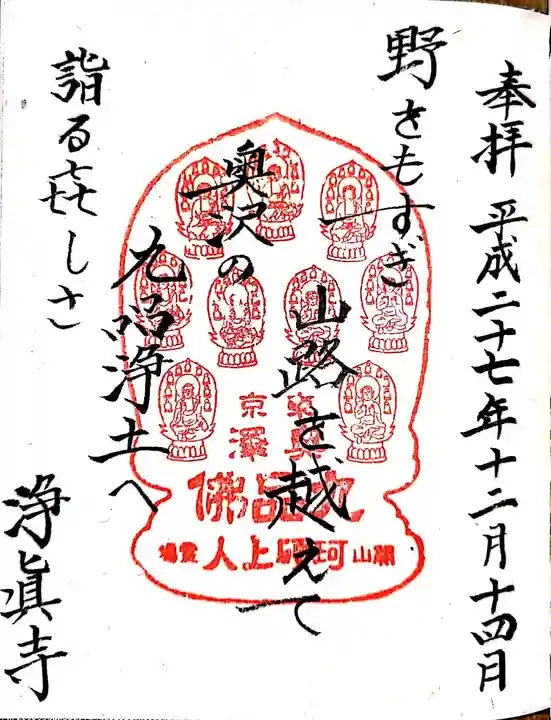 奉拝 平成二十七年十二月十四日
野をもすぎ
山路を越えて
奥沢の
九品浄土へ
詣る㐂しさ
浄眞寺
東京
奥澤
九品佛
開山珂碩上人霊場